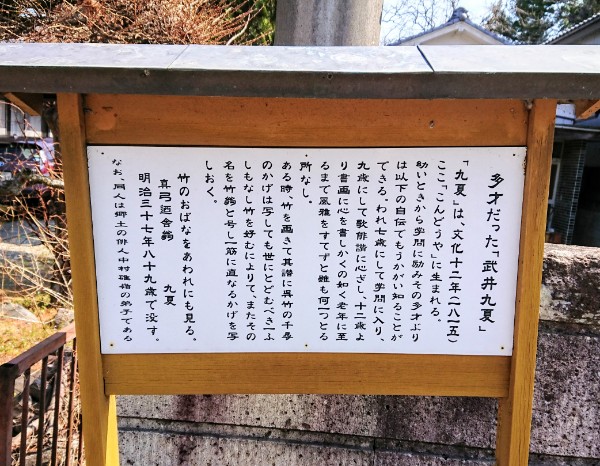 多才だった「武井九夏」
「九夏」は、文化十二年(一八一五)
ここ「こんどうや」に生まれる。
幼いときから学問に励みその多才ぶり
は以下の自伝でもうかがい知ることが
できる。われ七歳にして学問に入り、
九歳にして歌俳諧に心ざし、十二歳よ
り書画に心を書しかくの如く老年に至
るまで風雅をすてずと雖も何一つとる
所なし。
ある時、竹を画きて其讃に呉竹の千尋
のかげは写しても世にとどむべき一ふ
しもなし竹を好むによりて、またその
名を竹翁と号し一筋に直なるかげを写
しおく。
竹のおばなをあわれにも見る。
真弓廼舎翁 九夏
明治三十七年八十九歳で没す。
なお、同人は郷土の俳人中村碓嶺の弟子である